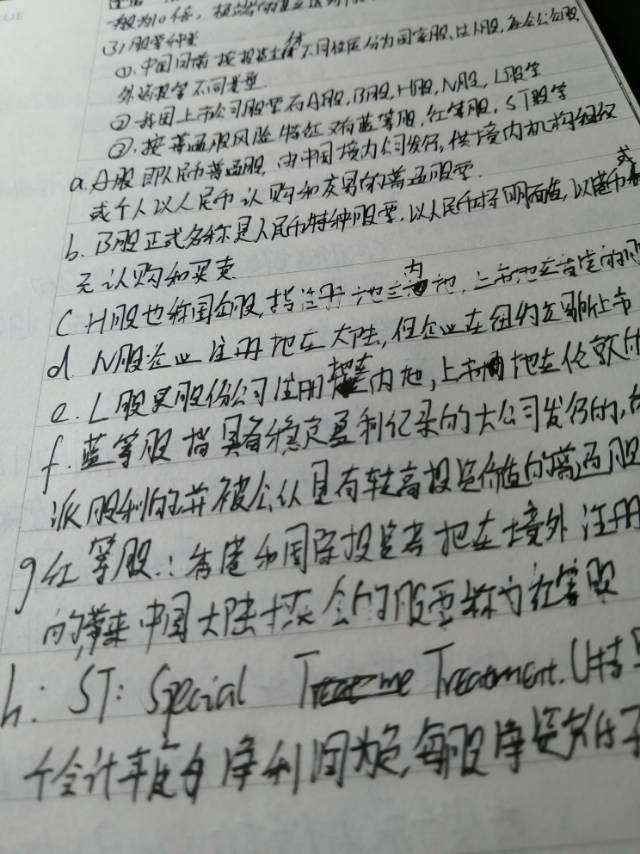 (3) 股票种类
①. 中国目前按投资主体不同性质分为国家股、法人股、社会公众股
外资股等不同类型
② 我国上市公司股票有A股, B股, H股, N股, L股等
③. 按普通股风险特征又有蓝筹股, 红筹股, ST股等
a. A股即人民币普通股 由中国境内公司发行, 供境内机构组织
或个人以人民币认购和交易的普通股票.
b. B股正式名称是人民币特种股票. 以人民币标明面值, 以港币或
元认购和买卖
C H股也称国企股, 指注册地在内地, 上市地在香港的
d. N股企业注册地在大陆, 但企业在纽约交易所上市
e. L股是股份公司注册在内地, 上市地在伦敦
f. 蓝筹股 指具有稳定盈利记录的大公司发行的,
派股利的并被公认具有较高投资价值的普通股
g 红筹股: 香港和国际投资者把在境外注册
的带来中国大陆概念的股票称为红筹股
h: ST: Special Treatment. (特
个会计年度的净利润为负, 每股净资产低于